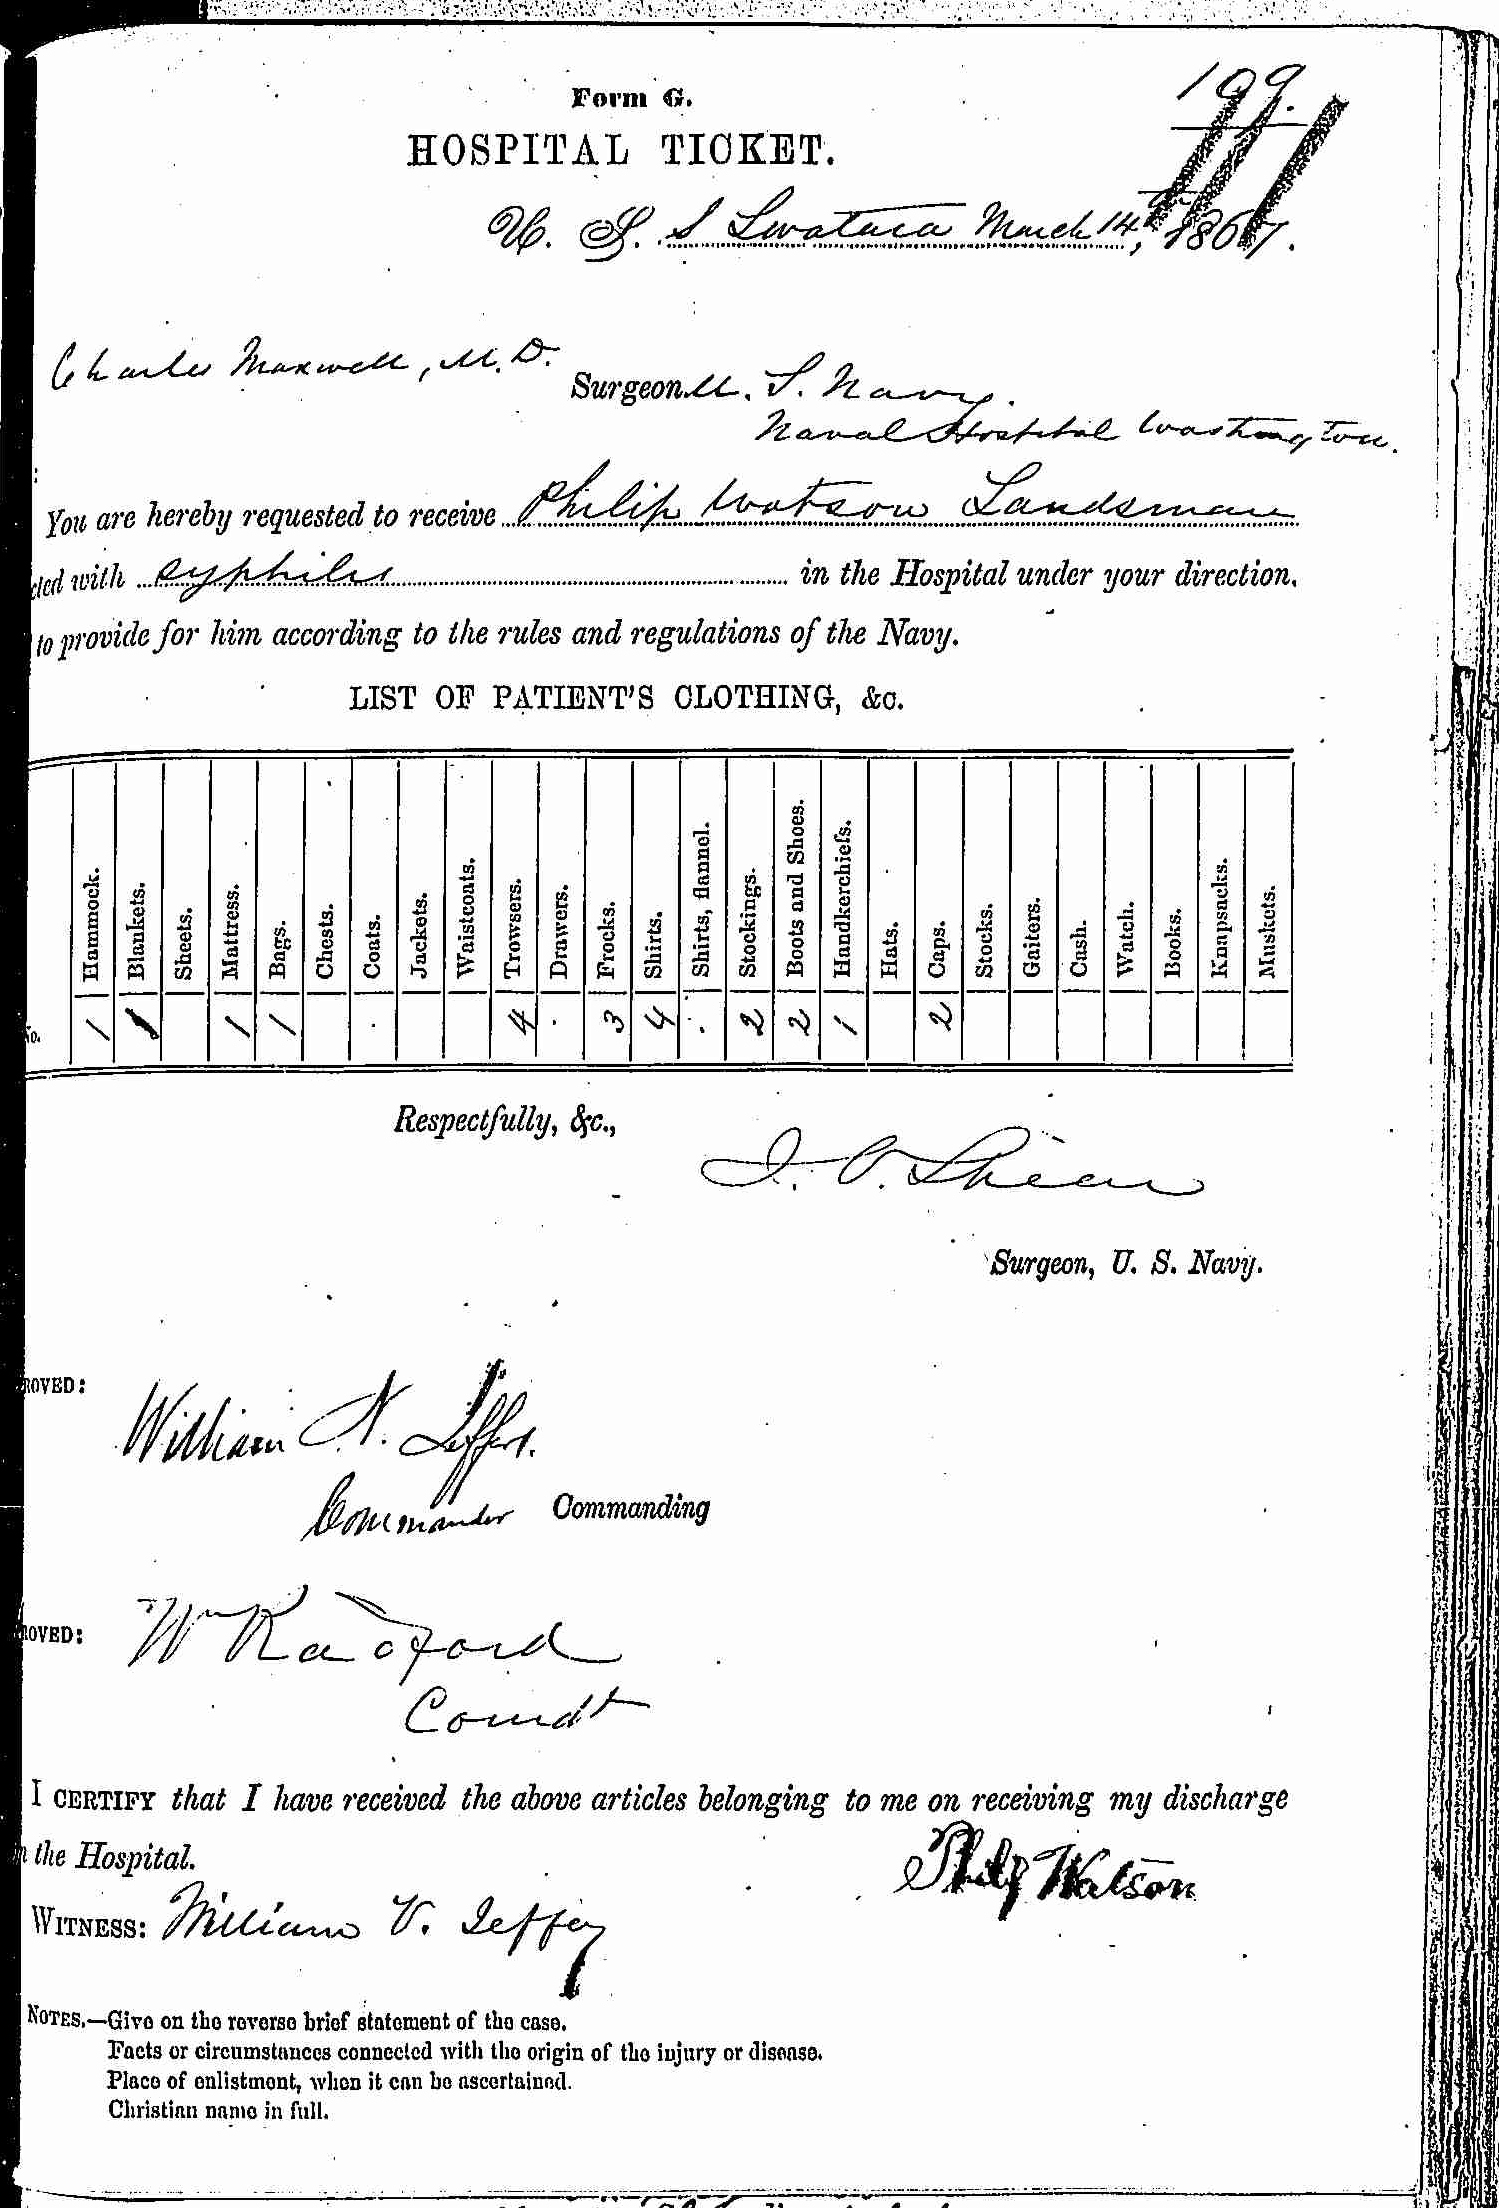 199.
Form G.
HOSPITAL TICKET.
U. S. S Swatara March 14th, 1867.
Charles Maxwell, M.D.
Surgeon U. S. Navy.
Naval Hospital Washington.
You are hereby requested to receive Philip Watson Landsman
cted with syphilis in the Hospital under your direction.
to provide for him according to the rules and regulations of the Navy.
LIST OF PATIENT'S CLOTHING, &c.
Hammock. Blankets. Sheets. Mattress. Bags. Chests. Coats. Jackets. Waistcoats. Trowsers. Drawers. Frocks. Shirts. Shirts, flannel. Stockings. Boots and Shoes. Handkerchiefs. Hats. Caps. Stocks. Gaiters. Cash. Watch. Books. Knapsacks. Muskets.
No. 1 1 1 1 4 3 4 2 2 1 2
Respectfully, &c.,
Surgeon, U. S. Navy.
ROVED:
William N. Jeffers.
Commander Commanding
ROVED: Wm Radford
Comdt
I CERTIFY that I have received the above articles belonging to me on receiving my discharge
the Hospital.
Philip Watson
WITNESS: William V. Jeffery
NOTES.—Give on the reverse brief statement of the case.
Facts or circumstances connected with the origin of the injury or disease.
Place of enlistment, when it can be ascertained.
Christian name in full.